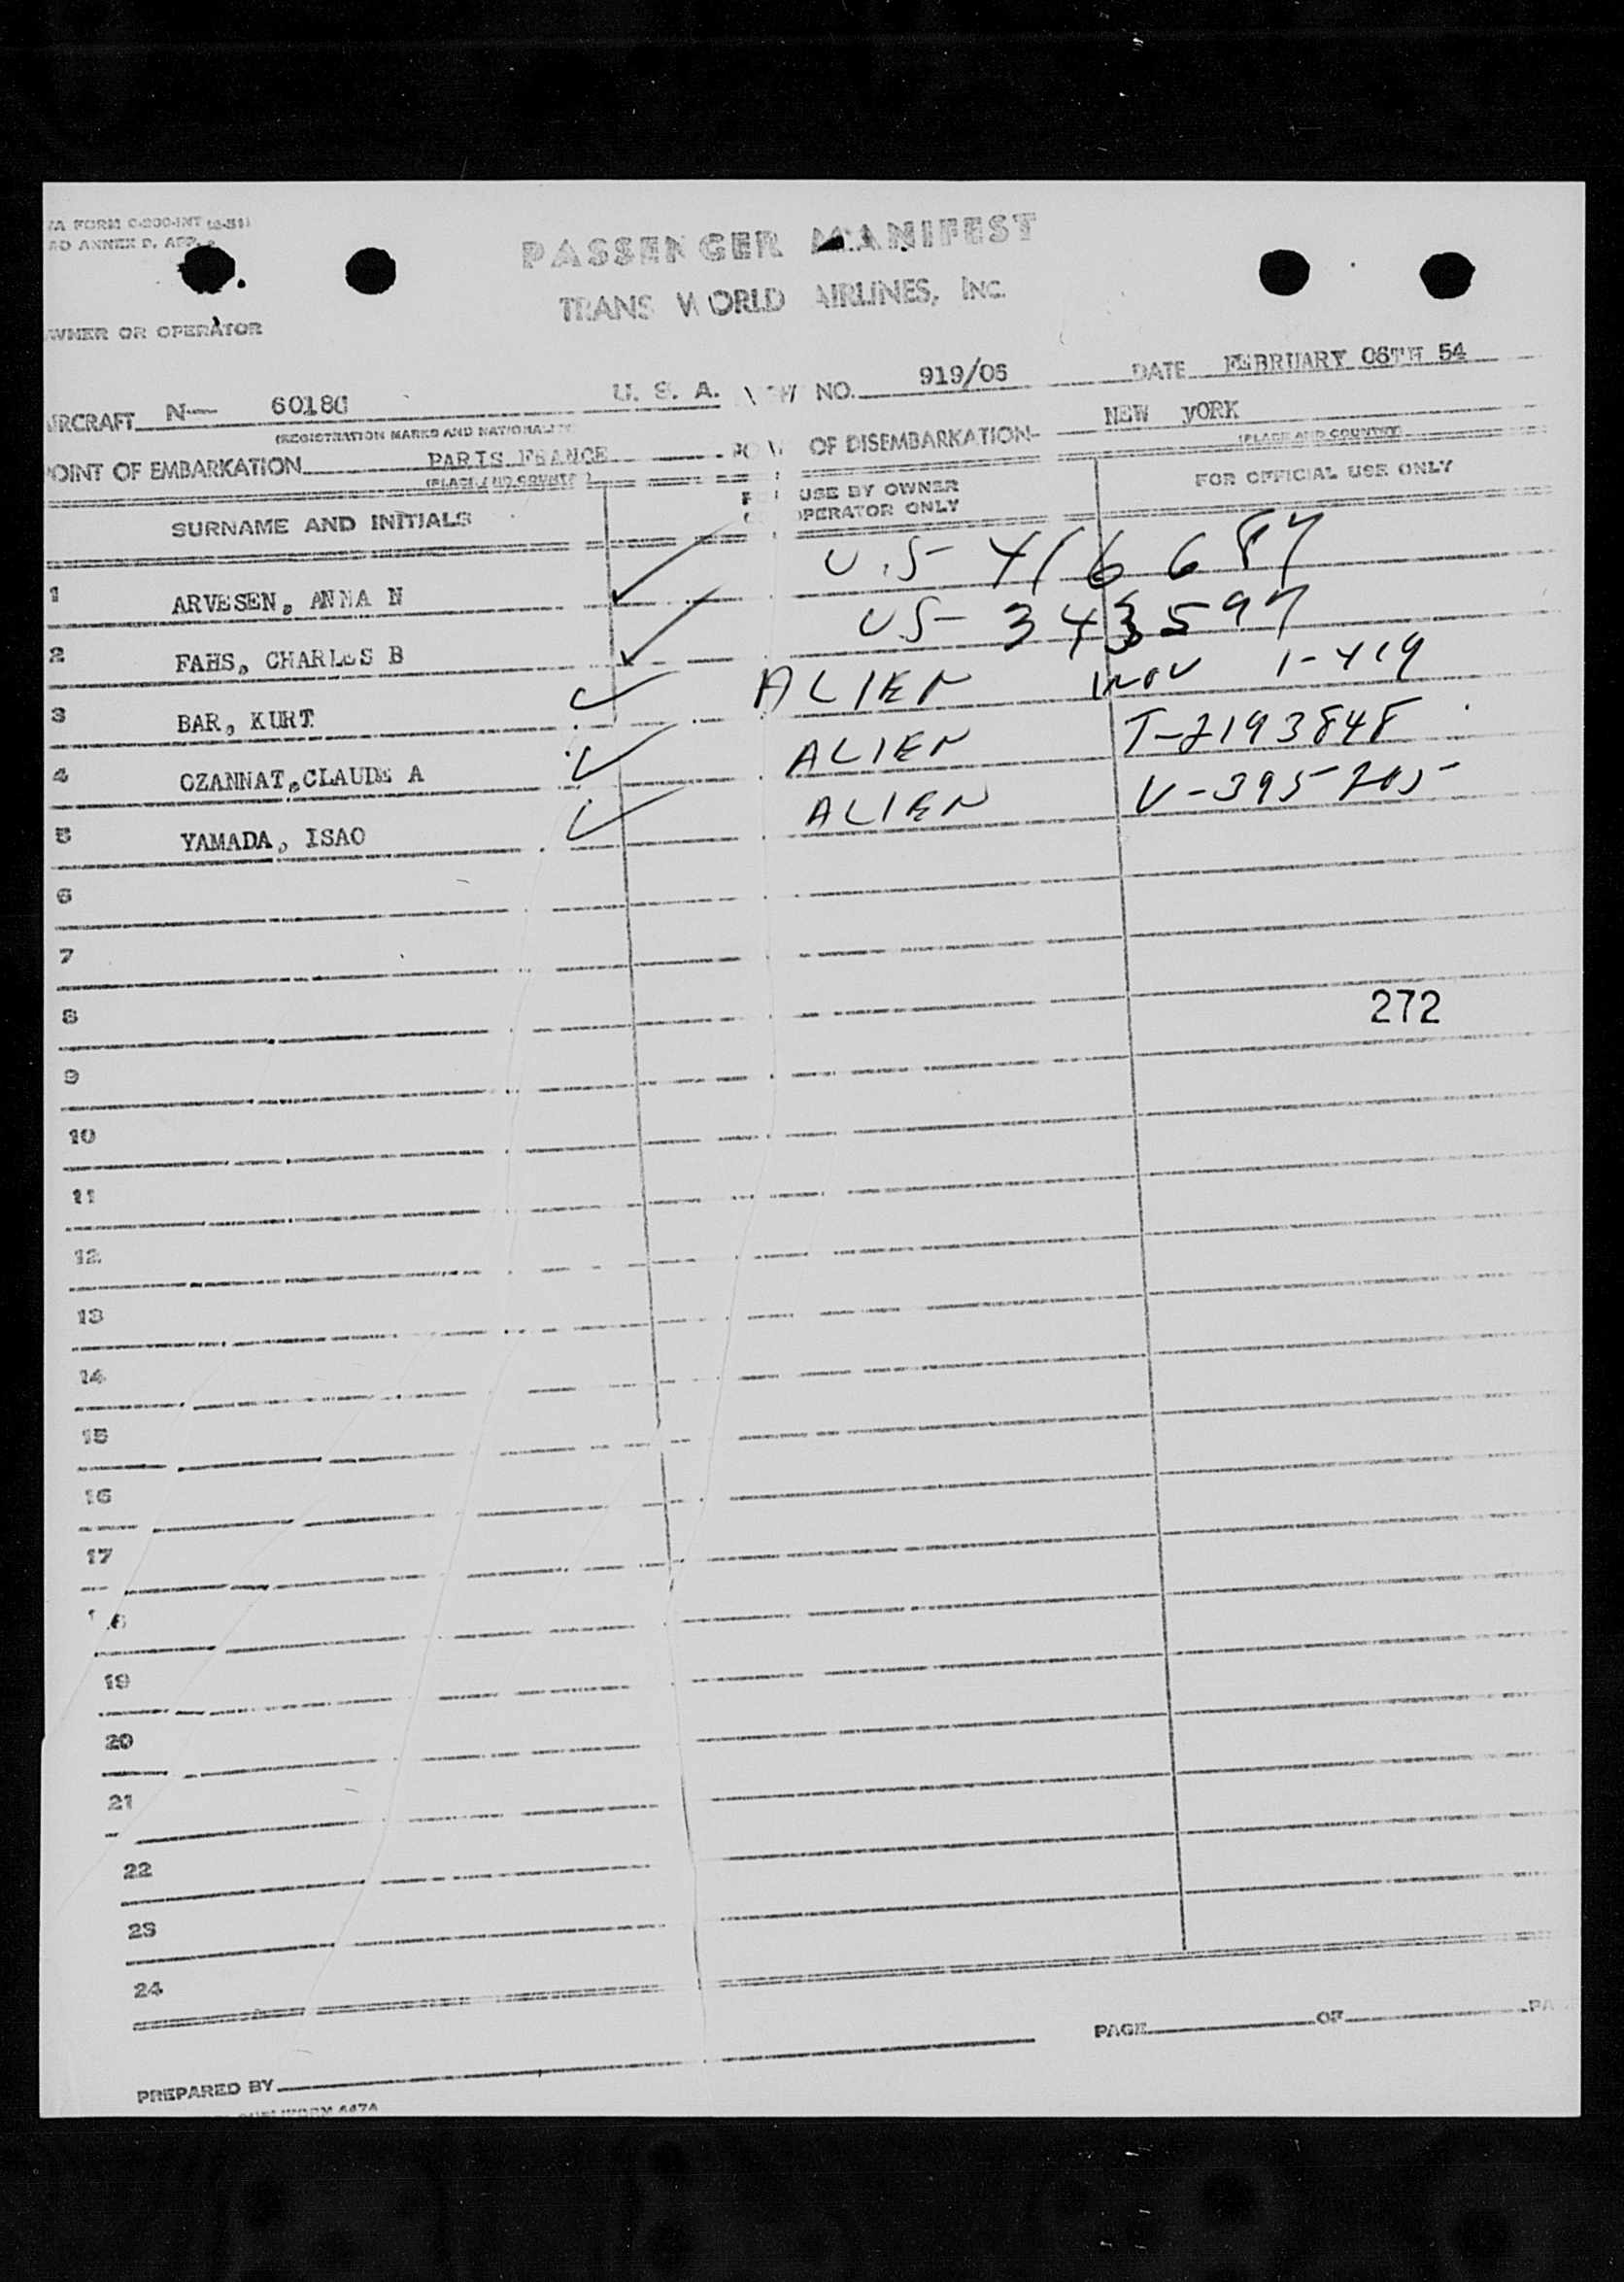 FORM C-200-INT (2-51)
ANNEX D, APP. 2
PASSENGER MANIFEST
TRANS WORLD AIRLINES, Inc.
OWNER OR OPERATOR
AIRCRAFT N— 6018C U. S. A. NO. 919/06 DATE FEBRUARY 06TH 54
(REGISTRATION MARKS AND NATIONALITY)
POINT OF EMBARKATION PARIS FRANCE OF DISEMBARKATION NEW yORK
(PLACE AND COUNTRY) (PLACE AND COUNTRY)
SURNAME AND INITIALS USE BY OWNER OPERATOR ONLY FOR OFFICIAL USE ONLY
1 ARVESEN, ANNA N U.S- 416687
2 FAHS, CHARLES B US- 343597
3 BAR, KURT ALIEN 1-419
4 OZANNAT,CLAUDE A ALIEN T-2193848
5 YAMADA, ISAO ALIEN V-395205
6
7
8 272
9
10
11
12
13
14
15
16
17
18
19
20
21
22
23
24
PAGE OF
PREPARED BY